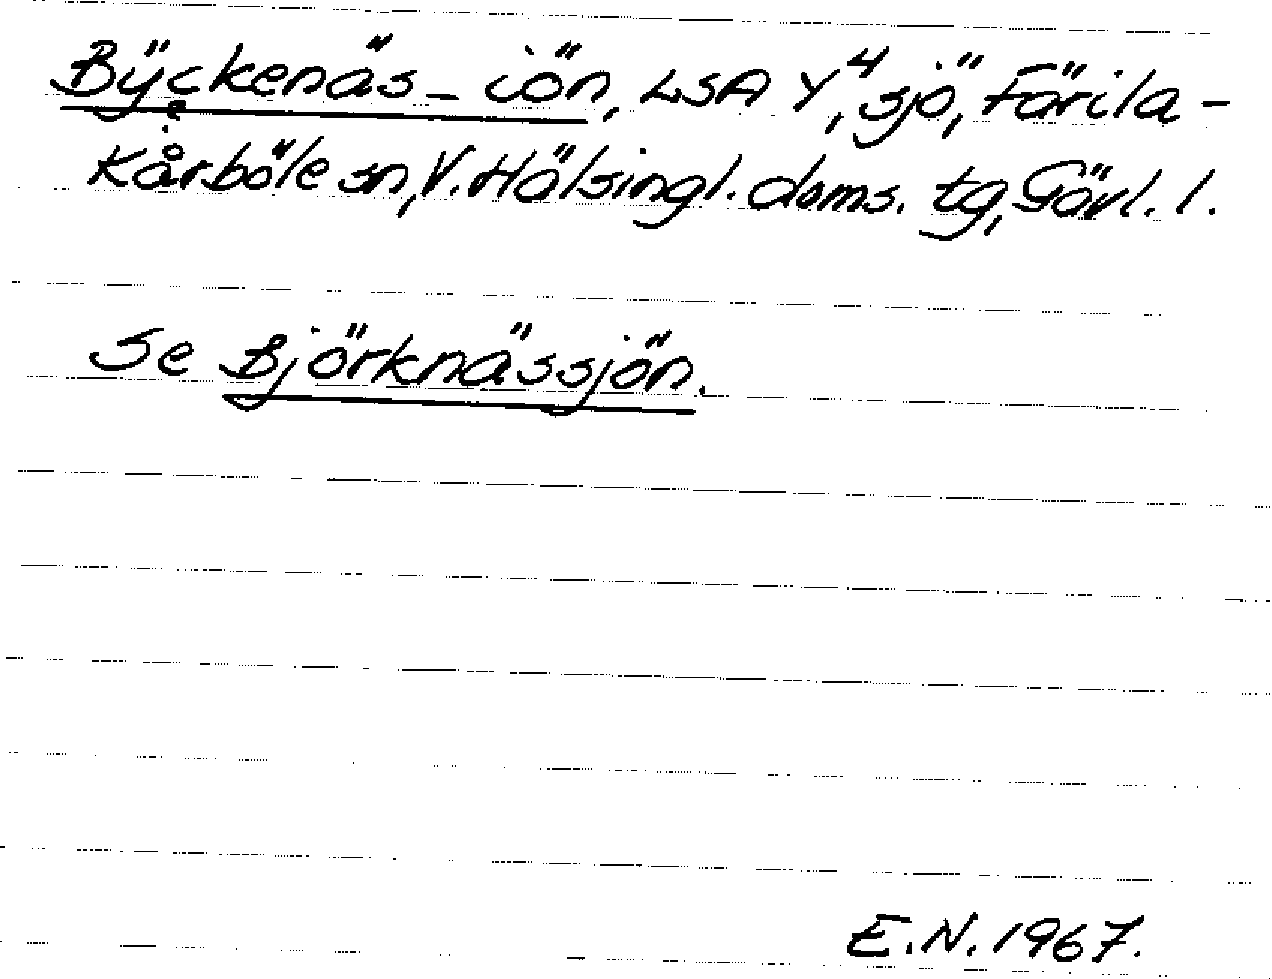 Bÿckenäs - iön, LSA Y4, sjö, Färila-
Kårböle sn, V. Hälsingl. doms. tg, Gävl. l.
Se Björknässjön.
E.N. 1967.